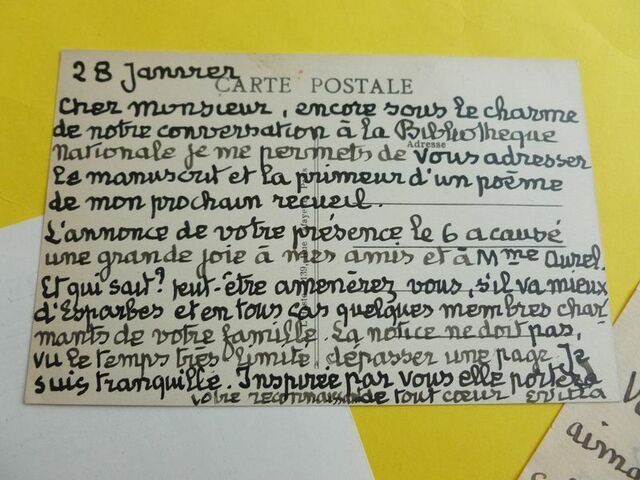 28 Janvier
CARTE POSTALE
Cher Monsieur, encore sous le charme
de notre conversation à la Bibliothèque
Adresse
Nationale je me permets de vous adresser
le manuscrit et la primeur d'un poëme
de mon prochain recueil.
L'annonce de votre présence le 6 a causé
une grande joie à mes amis et à Mme Aurel.
Et qui sait? peut-être amènerez vous, s'il va mieux
d'Esparbes et en tous cas quelques membres char-
mants de votre famille. La notice ne doit pas,
vu le temps très limité dépasser une page. Je
suis tranquille. Inspirée par vous elle portera
votre reconnaissance de tout cœur